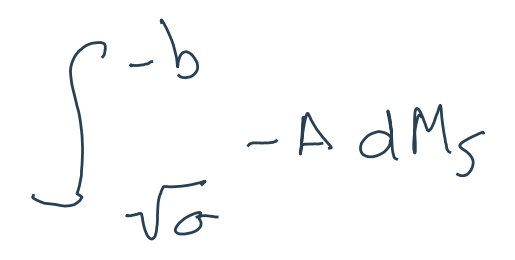 ∫_{√σ}^{-b} -A dM_s